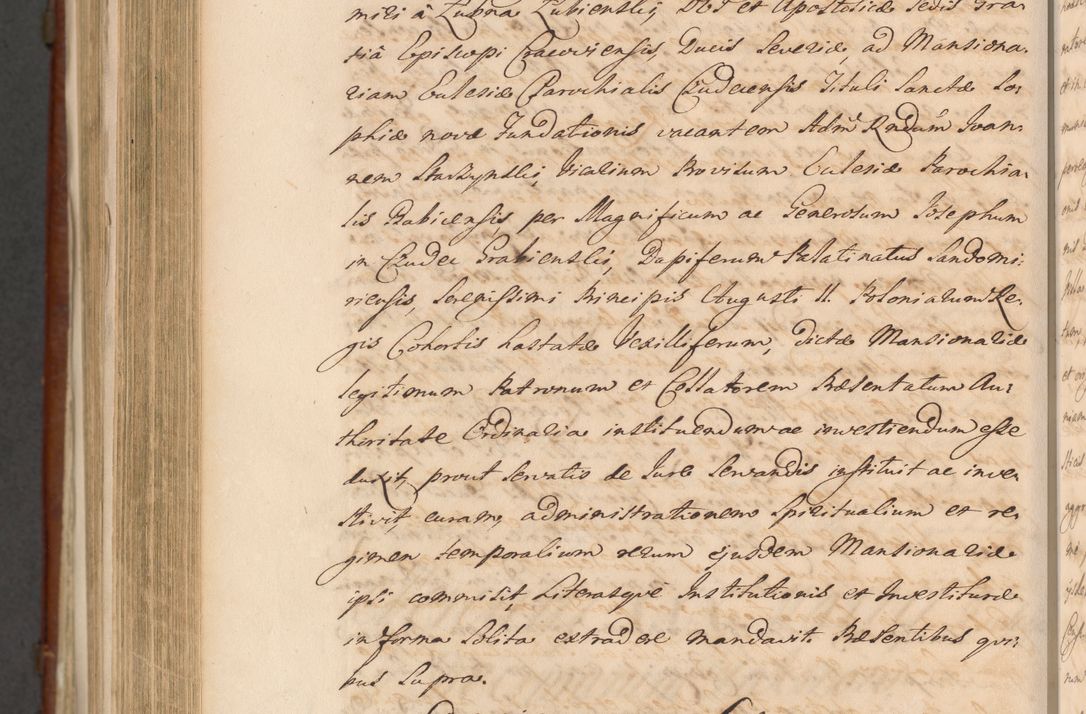 miri à Łubna Łubienski, Dei et Apostolicæ Sedis Gra-
tiâ Episcopi Cracoviensis, Ducis Severiæ, ad Mansiona-
riam Ecclesiæ Parochialis Czudecensis Tituli Sanctæ So-
phiæ novæ Fundationis vacantem Adm Rndum Joan-
nem Starzynski, Vicarium Provisum Ecclesiæ Parochia-
lis Babicensis, per Magnificum ac Generosum Josephum
in Czudec Grabienski, Dapiferum Palatinatus Sandomi-
riensis, Serenissimi Principis Augusti II. Poloniarum Re-
gis Cohortis hastatæ Vexilliferum, dictæ Mansionariæ
legitimum Patronum et Collatorem Præsentatum Au-
thoritate Ordinaria instituendum ac investiendum esse
duxit, prout servatis de Jure servandis instituit ac inve-
stivit, curam, administrationem Spiritualium et re-
gimen temporalium rerum ejusdem Mansionariæ
ipsi commisit, Literasque Institutionis et Investituræ
in forma solita extradere mandavit. Præsentibus qui-
bus supra.